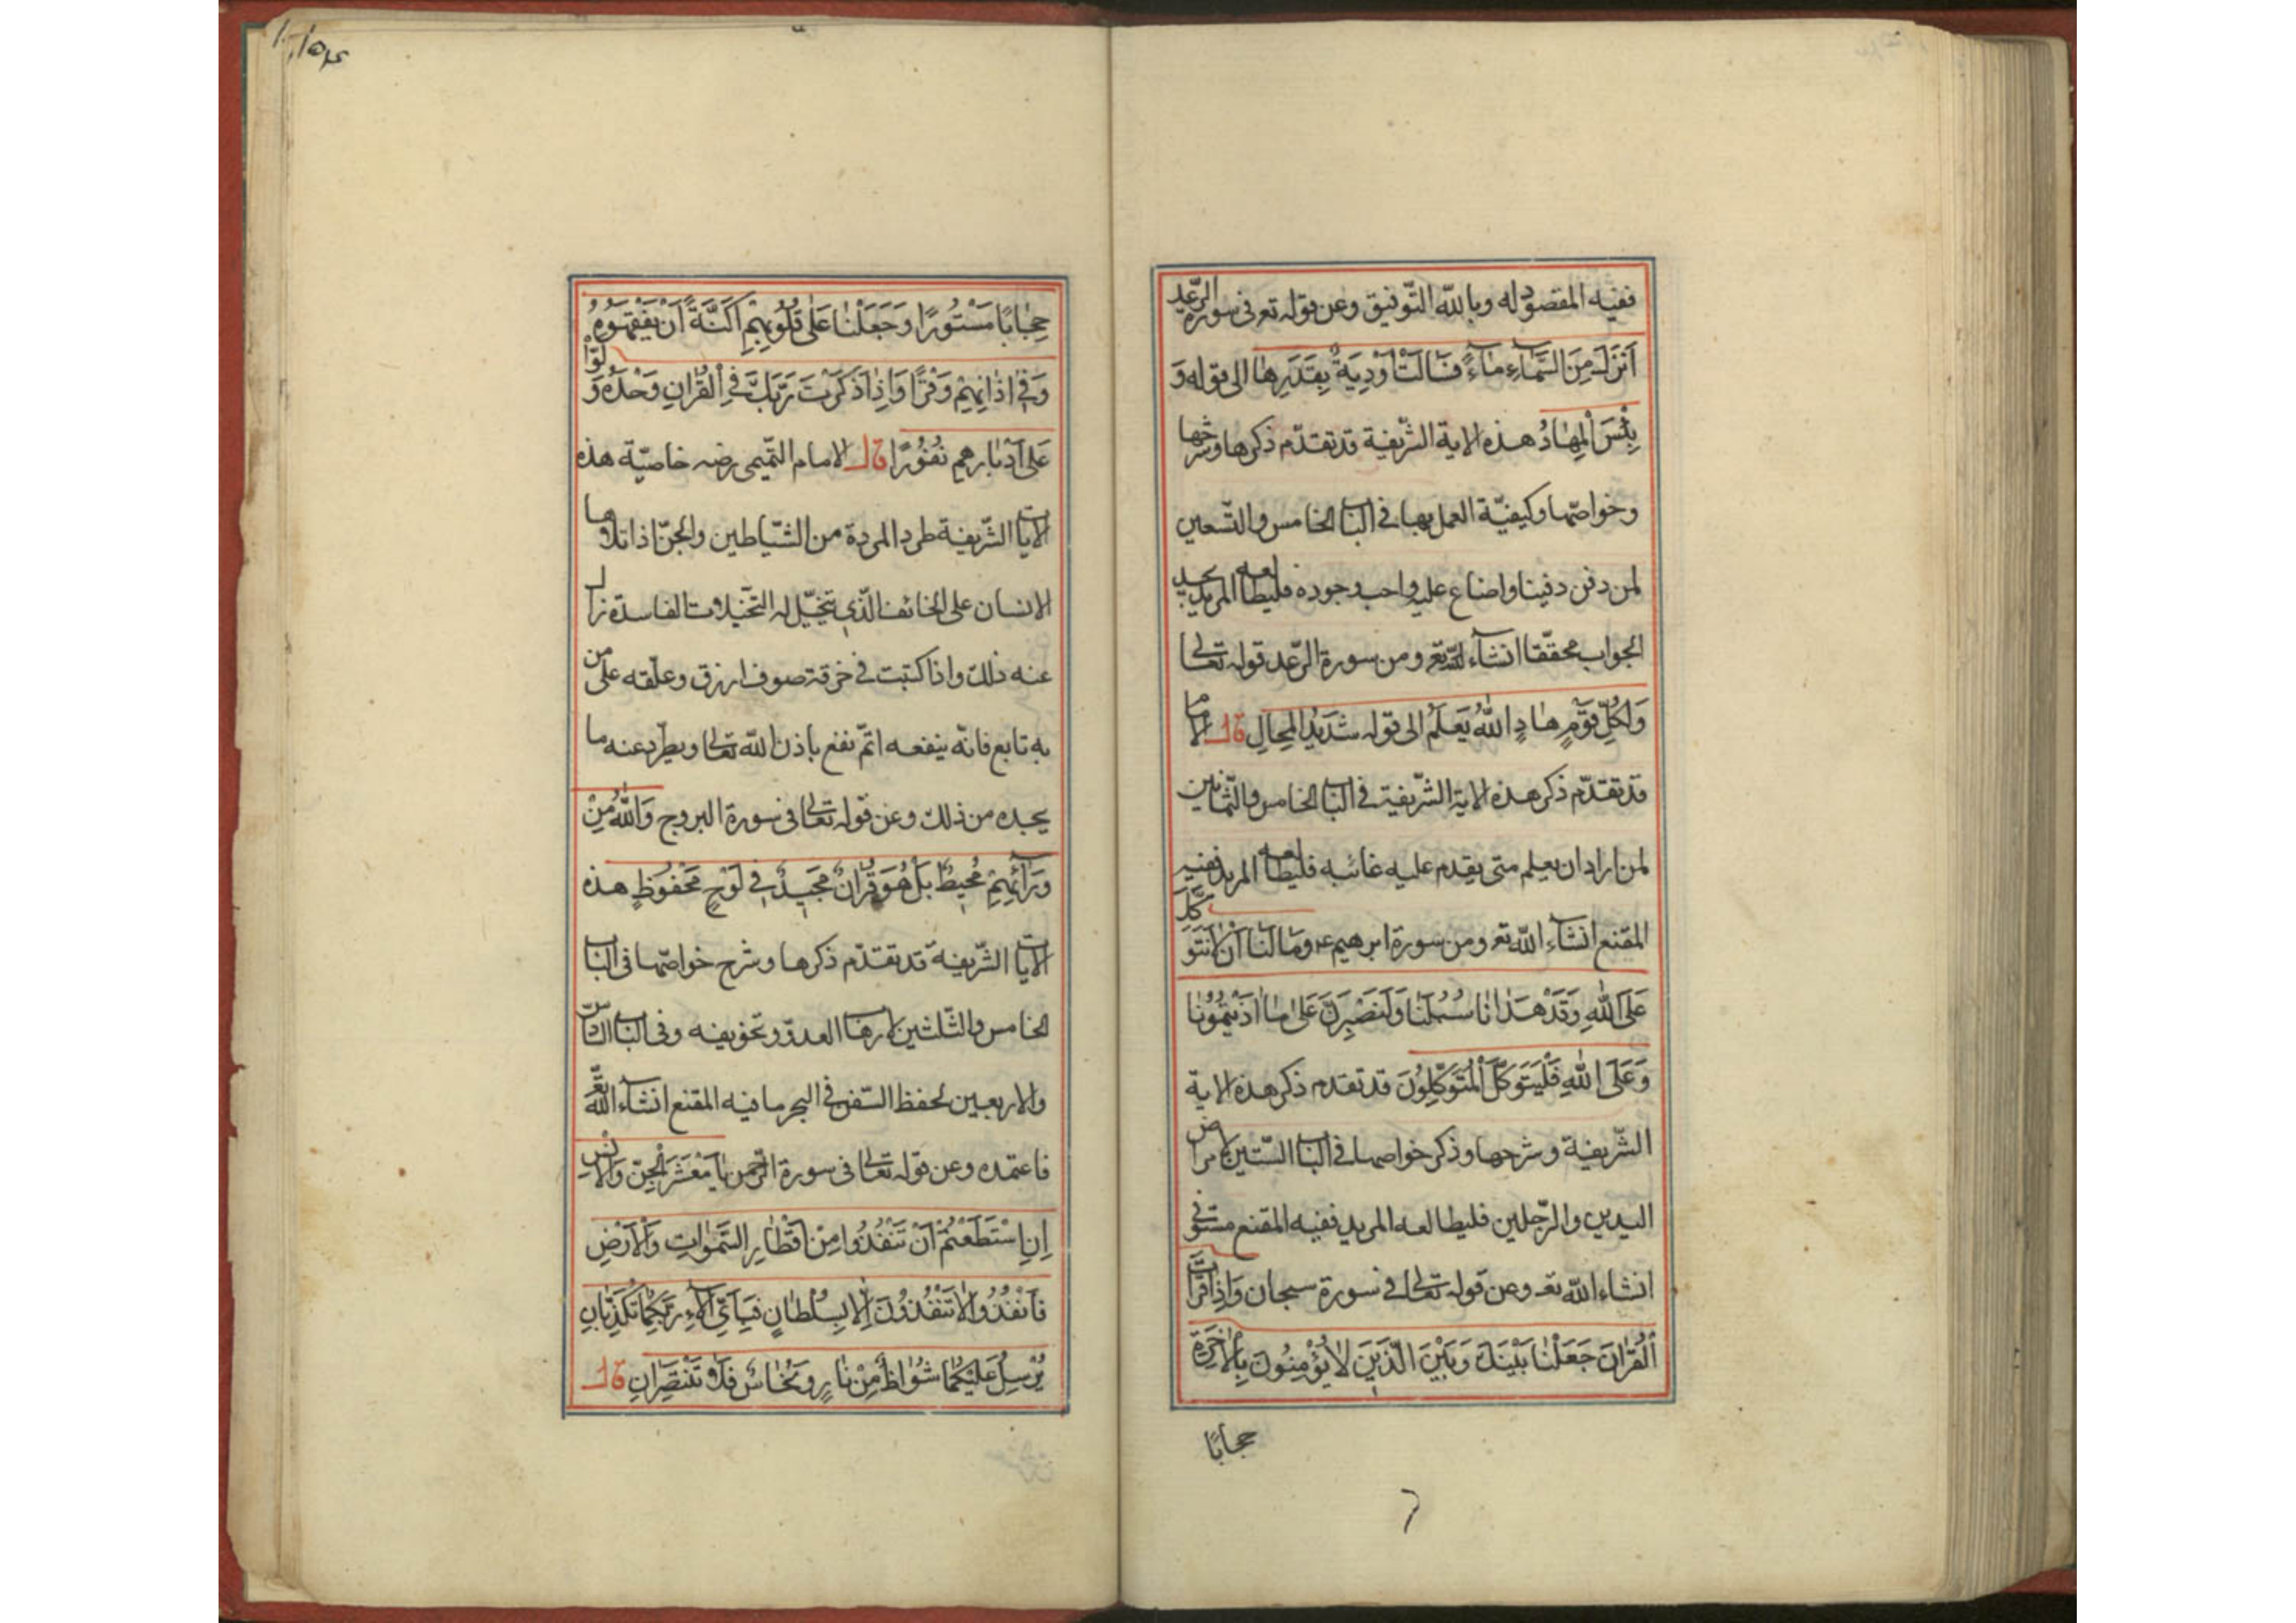 ففيه المقصود له وبالله التّوفيق وعن قوله تع فى سورة الرّعد
اَنْزَلَ مِنَ السَّمَاۤءِ مَاۤءً فَسَالَتْ اَوْدِيَةٌ بِقَدَرِهَا الى قوله وَ
بِئْسَ الْمِهَادُ هذه الاية الشّريفة قد تقدّم ذكرها وشرحها
وخواصّها وكيفيّة العمل بها فى الباب الخامس والتّسعين
لمن دفن دفينا واضاع عليه واحب وجوده فليطالعه المريد يجد
الجواب محقّقا انشاۤء الله تع ومن سورة الرّعد قوله تعالى
وَلِكُلِّ قَوْمٍ هَادٍ اَللّٰهُ يَعْلَمُ الى قوله شَدِيدُ الْمِحَالِ قال الاما
قد تقدّم ذكر هذه الاية الشّريفة فى الباب الخامس والثّمانين
لمن اراد ان يعلم متى يقدم عليه غائبه فليطالعه المريد ففيه
المقنع انشاۤء الله تع ومن سورة ابرهيم عم وَمَا لَنَا اَنْ لَا نَتَوَكَّلَ
عَلَى اللّٰهِ وَقَدْ هَدَانَا سُبُلَنَا وَلَنَصْبِرَنَّ عَلٰى مَا اٰذَيْتُمُونَا
وَعَلَى اللّٰهِ فَلْيَتَوَكَّلِ الْمُتَوَكِّلُونَ قد تقدم ذكر هذه الاية
الشّريفة وشرحها وذكر خواصها فى الباب السّتين لامراض
اليدين والرّجلين فليطالعه المريد ففيه المقنع مستوفى
انشاء الله تع وعن قوله تعالى فى سورة سبحان وَاِذَا قَرَأْتَ
الْقُرْاٰنَ جَعَلْنَا بَيْنَكَ وَبَيْنَ الَّذِينَ لَا يُؤْمِنُونَ بِالْاٰخِرَةِ
حجابًا
١٠١٥٤
حِجَابًا مَسْتُورًا وَجَعَلْنَا عَلٰى قُلُوبِهِمْ اَكِنَّةً اَنْ يَفْقَهُوهُ
وَفِى اٰذَانِهِمْ وَقْرًا وَاِذَا ذَكَرْتَ رَبَّكَ فِى الْقُرْاٰنِ وَحْدَهُ وَلَّوْا
عَلٰى اَدْبَارِهِمْ نُفُورًا قال الامام التّميمى رضه خاصيّة هذه
الايات الشّريفة طرد المردة من الشّياطين والجنّ اذا تلاوها
الانسان على الخائف الّذى تتخيّل له التّخيّلات الفاسدة زال
عنه ذلك واذا كتبت فى خرقة صوف ازرق وعلّقه على من
به تابع فانّه ينفعه اتمّ نفع باذن الله تعالى ويطرد عنه ما
يجده من ذلك وعن قوله تعالى فى سورة البروج وَاللّٰهُ مِنْ
وَرَاۤئِهِمْ مُحِيطٌ بَلْ هُوَ قُرْاٰنٌ مَجِيدٌ فِى لَوْحٍ مَحْفُوظٍ هذه
الايات الشّريفة قد تقدّم ذكرها وشرح خواصّها فى الباب
الخامس والثّلثين لارهاب العدوّ وتخويفه وفى الباب السّادس
والاربعين لحفظ السّفن فى البحر ما فيه المقنع انشاۤء الله تع
فاعتمده وعن قوله تعالى فى سورة الرّحمن يَا مَعْشَرَ الْجِنِّ وَالْاِنْسِ
اِنِ اسْتَطَعْتُمْ اَنْ تَنْفُذُوا مِنْ اَقْطَارِ السَّمٰوَاتِ وَالْاَرْضِ
فَانْفُذُوا لَا تَنْفُذُونَ اِلَّا بِسُلْطَانٍ فَبِاَىِّ اٰلَاۤءِ رَبِّكُمَا تُكَذِّبَانِ
يُرْسَلُ عَلَيْكُمَا شُوَاظٌ مِنْ نَارٍ وَنُحَاسٌ فَلَا تَنْتَصِرَانِ قال